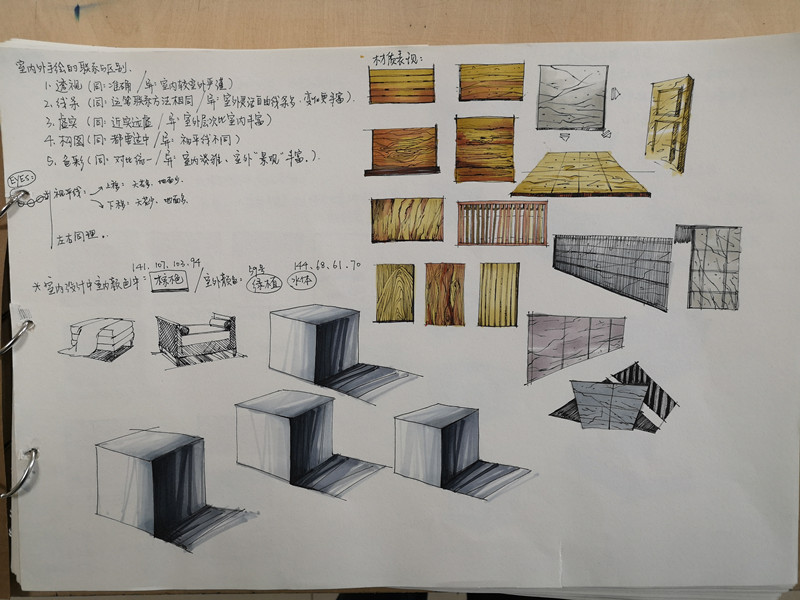 室内外手绘的联系与区别.
1. 透视(同:准确 /异:室内较室外严谨)
2. 线条(同:运笔联系方法相同 /异:室外灵活自由线条多,变化更丰富).
3. 虚实(同:近实远虚 /异:室外层次比室内丰富)
4. 构图(同:都需适中 /异:视平线不同)
5. 色彩(同:对比统一 /异:室内淡雅、室外"景观"丰富.).
EYES:
视平线:
上移: 天若多. 地面少.
下移: 天若少. 地面多.
左右同理.
141. 107. 103. 94
59号
144. 68. 61. 70
室内设计中室内颜色中: 棕色 / 室外颜色: 绿植 水体
材质表现: